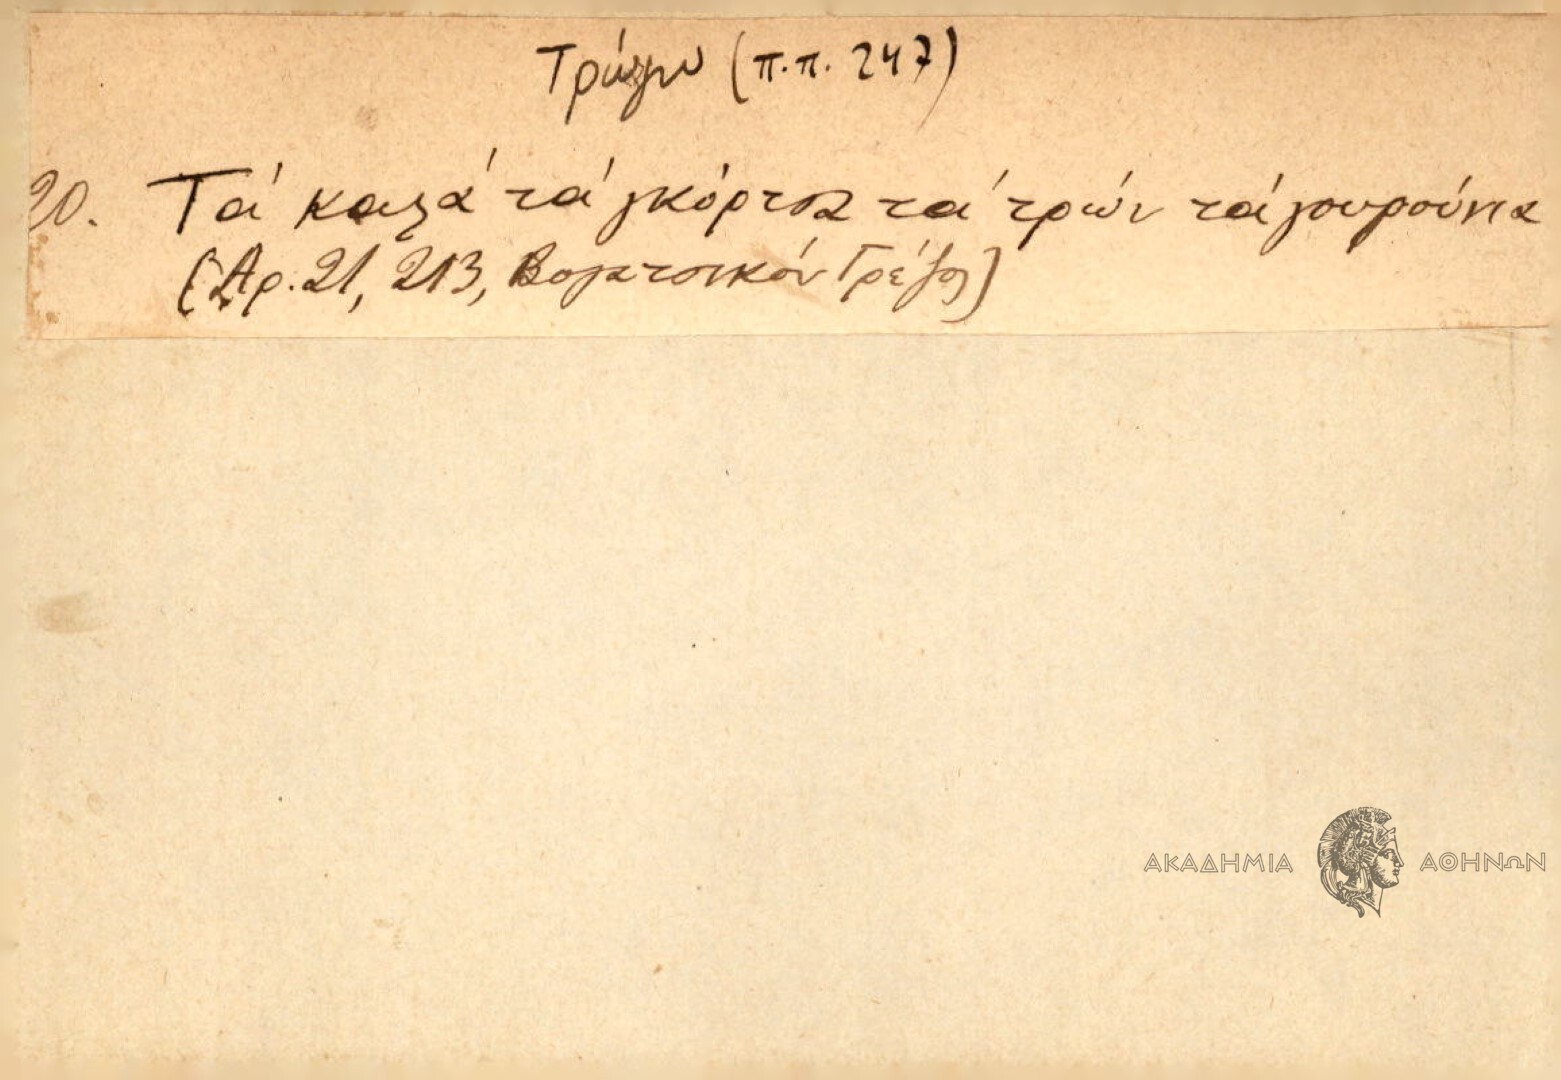 Τρώγω (π.π. 247)
20. Τά καλά τά γκόρτσα τά τρών τά γουρούνια
(Αρ. 21, 213, Βογατσικόν Γρέβ)
ΑΚΑΔΗΜΙΑ ΑΘΗΝΩΝ